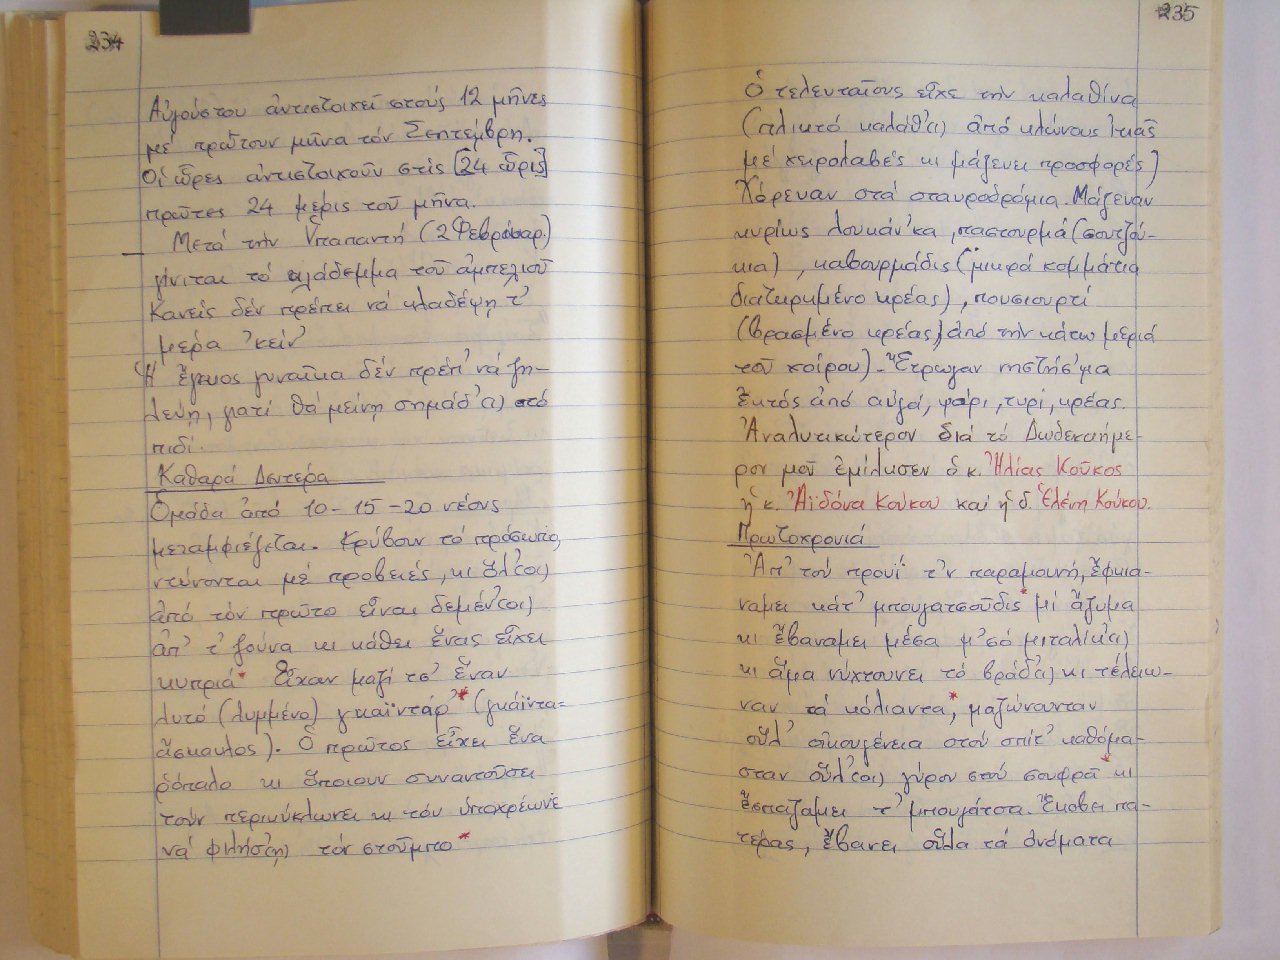 234
Αὐγούστου ἀντιστοιχεῖ στούς 12 μῆνες
μέ πρῶτουν μῆνα τόν Σεπτέμβρη.
Οἱ ὧρες ἀντιστοιχοῦν στίς [24 ὧρις]
πρῶτες 24 μέρις τοῦ μῆνα.
Μετά τήν Ὑπαπαντή (2 Φεβρουαρ.)
γίνιται τό κλάδεμμα τοῦ ἀμπελιοῦ
Κανείς δέν πρέπει νά κλαδέψῃ τ'
μερά 'κείν'
Ἡ ἔγκυος γυναῖκα δέν πρέπ' νά ζη-
λεύῃ, γιατί θά μείνῃ σημάδ'(ι) στό
πιδί.
Καθαρά Δευτέρα
Ὁμάδα ἀπό 10-15-20 νέους
μεταμφιέζεται. Κρύβουν τό πρόσωπο,
ντύνονται μέ προβειές, κι ὅλ'(οι)
ἀπό τόν πρῶτο εἶναι δεμέν'(οι)
ἀπ' τ' ζούνα κι κάθει ἕνας εἶχει
κυπριά* Εἶχαν μαζί τσ' ἕναν
λυτό (λυμμένο) γκαϊντάρ'* (γκάϊντα=
ἄσκαυλος). Ὁ πρῶτος εἶχει ἕνα
ρόπαλο κι ὅποιουν συναντοῦσει
τούν περικύκλωνει κι τόν ὑποχρέωνε
νά φιλήσ(ῃ) τόν στοῦμπο*
235
Ὁ τελευταῖους εἶχε τήν καλαθίνα
(πλικτό καλάθ'(ι) ἀπό κλώνους ἰτιᾶς
μέ χειρολαβές κι μάζευει προσφορές]
Χόρευαν στά σταυροδρόμια. Μάζευαν
κυρίως λουκάν'κα, παστουρμά (σουτζού-
κια), καβουρμάδις (μικρά κομμάτια
διατηρημένο κρέας), πουσιουρτί
(βρασμένο κρέας, ἀπό τήν κάτω μεριά
τοῦ χοίρου). Ἔτρωγαν νηστήσ'μα
ἐκτός ἀπό αὐγά, ψάρι, τυρί, κρέας.
Ἀναλυτικώτερον διά τό Δωδεκαήμε-
ρον μοῦ ἐμίλησεν ὁ κ. Ἠλίας Κοῦκος
ἡ κ. Ἀϊδόνα Κούκου καί ἡ δ. Ἑλένη Κούκου.
Πρωτοχρονιά
Ἀπ' τού προυΐ τ'ν παραμουνή, ἔφκια-
ναμει κάτ' μπουγατσοῦδις* μί ἄζυμα
κι ἔβαναμει μέσα μ'σό μιταλίκ'(ι)
κι ἅμα νύχτουνει τό βράδ'(ι) κι τέλειω-
ναν τά κόλιαντα*, μαζώνουνταν
οὕλ' οἰκουγένεια στού σπίτ' καθόμα-
σταν οὕλ'(οι) γύρου στού σουφρᾶ* κι
ἔσπαζαμει τ' μπουγάτσα. Ἔκοβει πα-
τέρας, ἔβανει οὕλα τά ὀνόματα